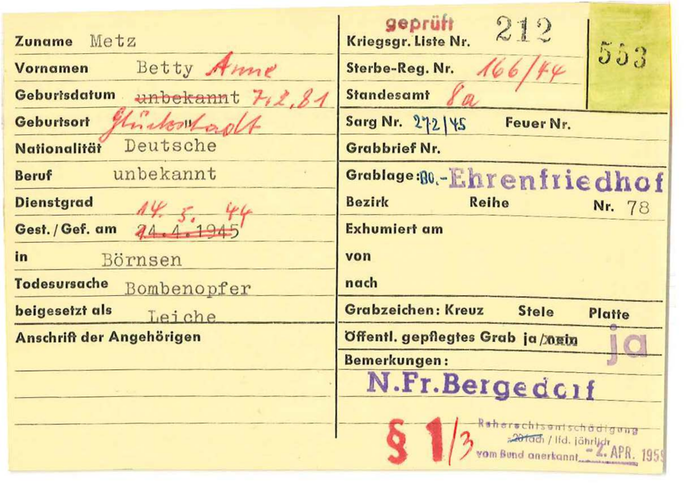 Zuname Metz
Vornamen Betty Anne
Geburtsdatum unbekannt 7.2.81
Geburtsort Glückstadt
Nationalität Deutsche
Beruf unbekannt
Dienstgrad
14. 5. 44
Gest./Gef. am 24.4.1945
in Börnsen
Todesursache Bombenopfer
beigesetzt als Leiche
Anschrift der Angehörigen
geprüft
Kriegsgr. Liste Nr. 212
553
Sterbe-Reg. Nr. 166/44
Standesamt 8a
Sarg Nr. 272/45 Feuer Nr.
Grabbrief Nr.
Grablage: Bo.-Ehrenfriedhof
Bezirk Reihe Nr. 78
Exhumiert am
von
nach
Grabzeichen: Kreuz Stele Platte
Öffentl. gepflegtes Grab ja/nein ja
Bemerkungen:
N.Fr.Bergedorf
§ 1/3
Ruherechtsentschädigung
20fach / lfd. jährlich
vom Bund anerkannt -2. APR. 1959